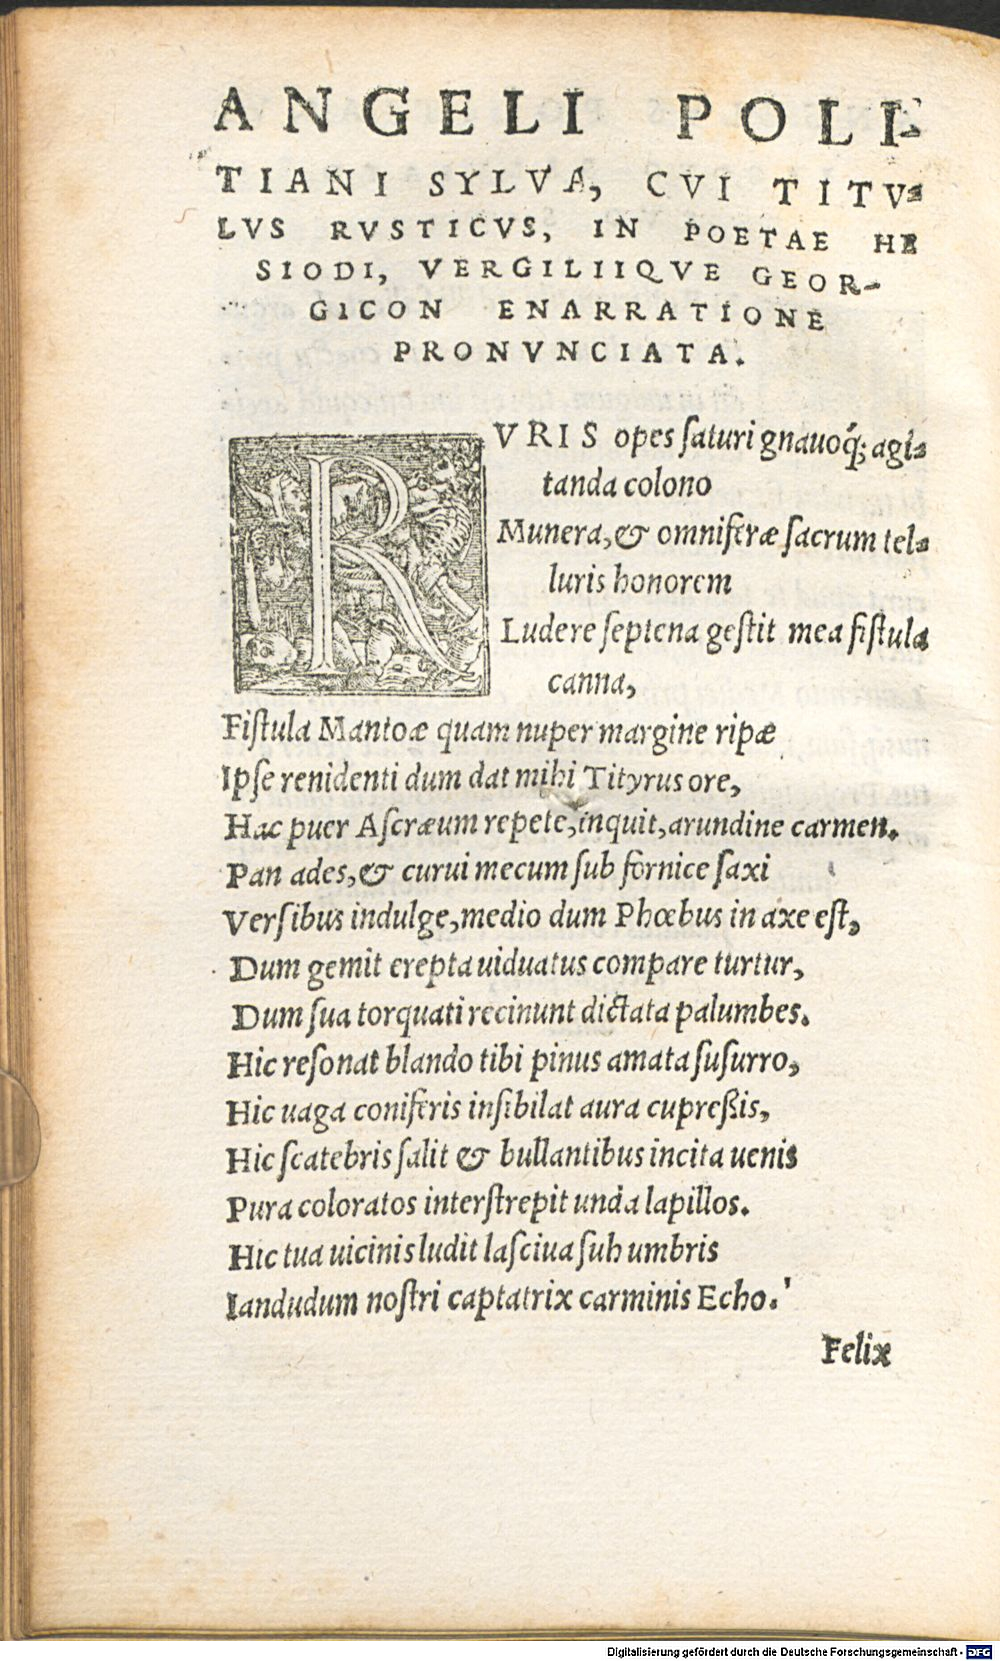 ANGELI POLI-
TIANI SYLVA, CVI TITV-
LVS RVSTICVS, IN POETAE HE
SIODI, VERGILIIQVE GEOR-
GICON ENARRATIONE
PRONVNCIATA.
RVRIS opes ſaturi gnauoq́; agi-
tanda colono
Munera, & omniferæ ſacrum tel-
luris honorem
Ludere ſeptena geſtit mea fiſtula
canna,
Fiſtula Mantoæ quam nuper margine ripæ
Ipſe renidenti dum dat mihi Tityrus ore,
Hac puer Aſcræum repete, inquit, arundine carmen.
Pan ades, & curui mecum ſub fornice ſaxi
Verſibus indulge, medio dum Phœbus in axe eſt,
Dum gemit erepta uiduatus compare turtur,
Dum ſua torquati recinunt dictata palumbes.
Hic reſonat blando tibi pinus amata ſuſurro,
Hic uaga coniferis inſibilat aura cupreßis,
Hic ſcatebris ſalit & bullantibus incita uenis
Pura coloratos interſtrepit unda lapillos.
Hic tua uicinis ludit laſciua ſub umbris
Iandudum noſtri captatrix carminis Echo.
Felix
Digitalisierung gefördert durch die Deutsche Forschungsgemeinschaft - DFG